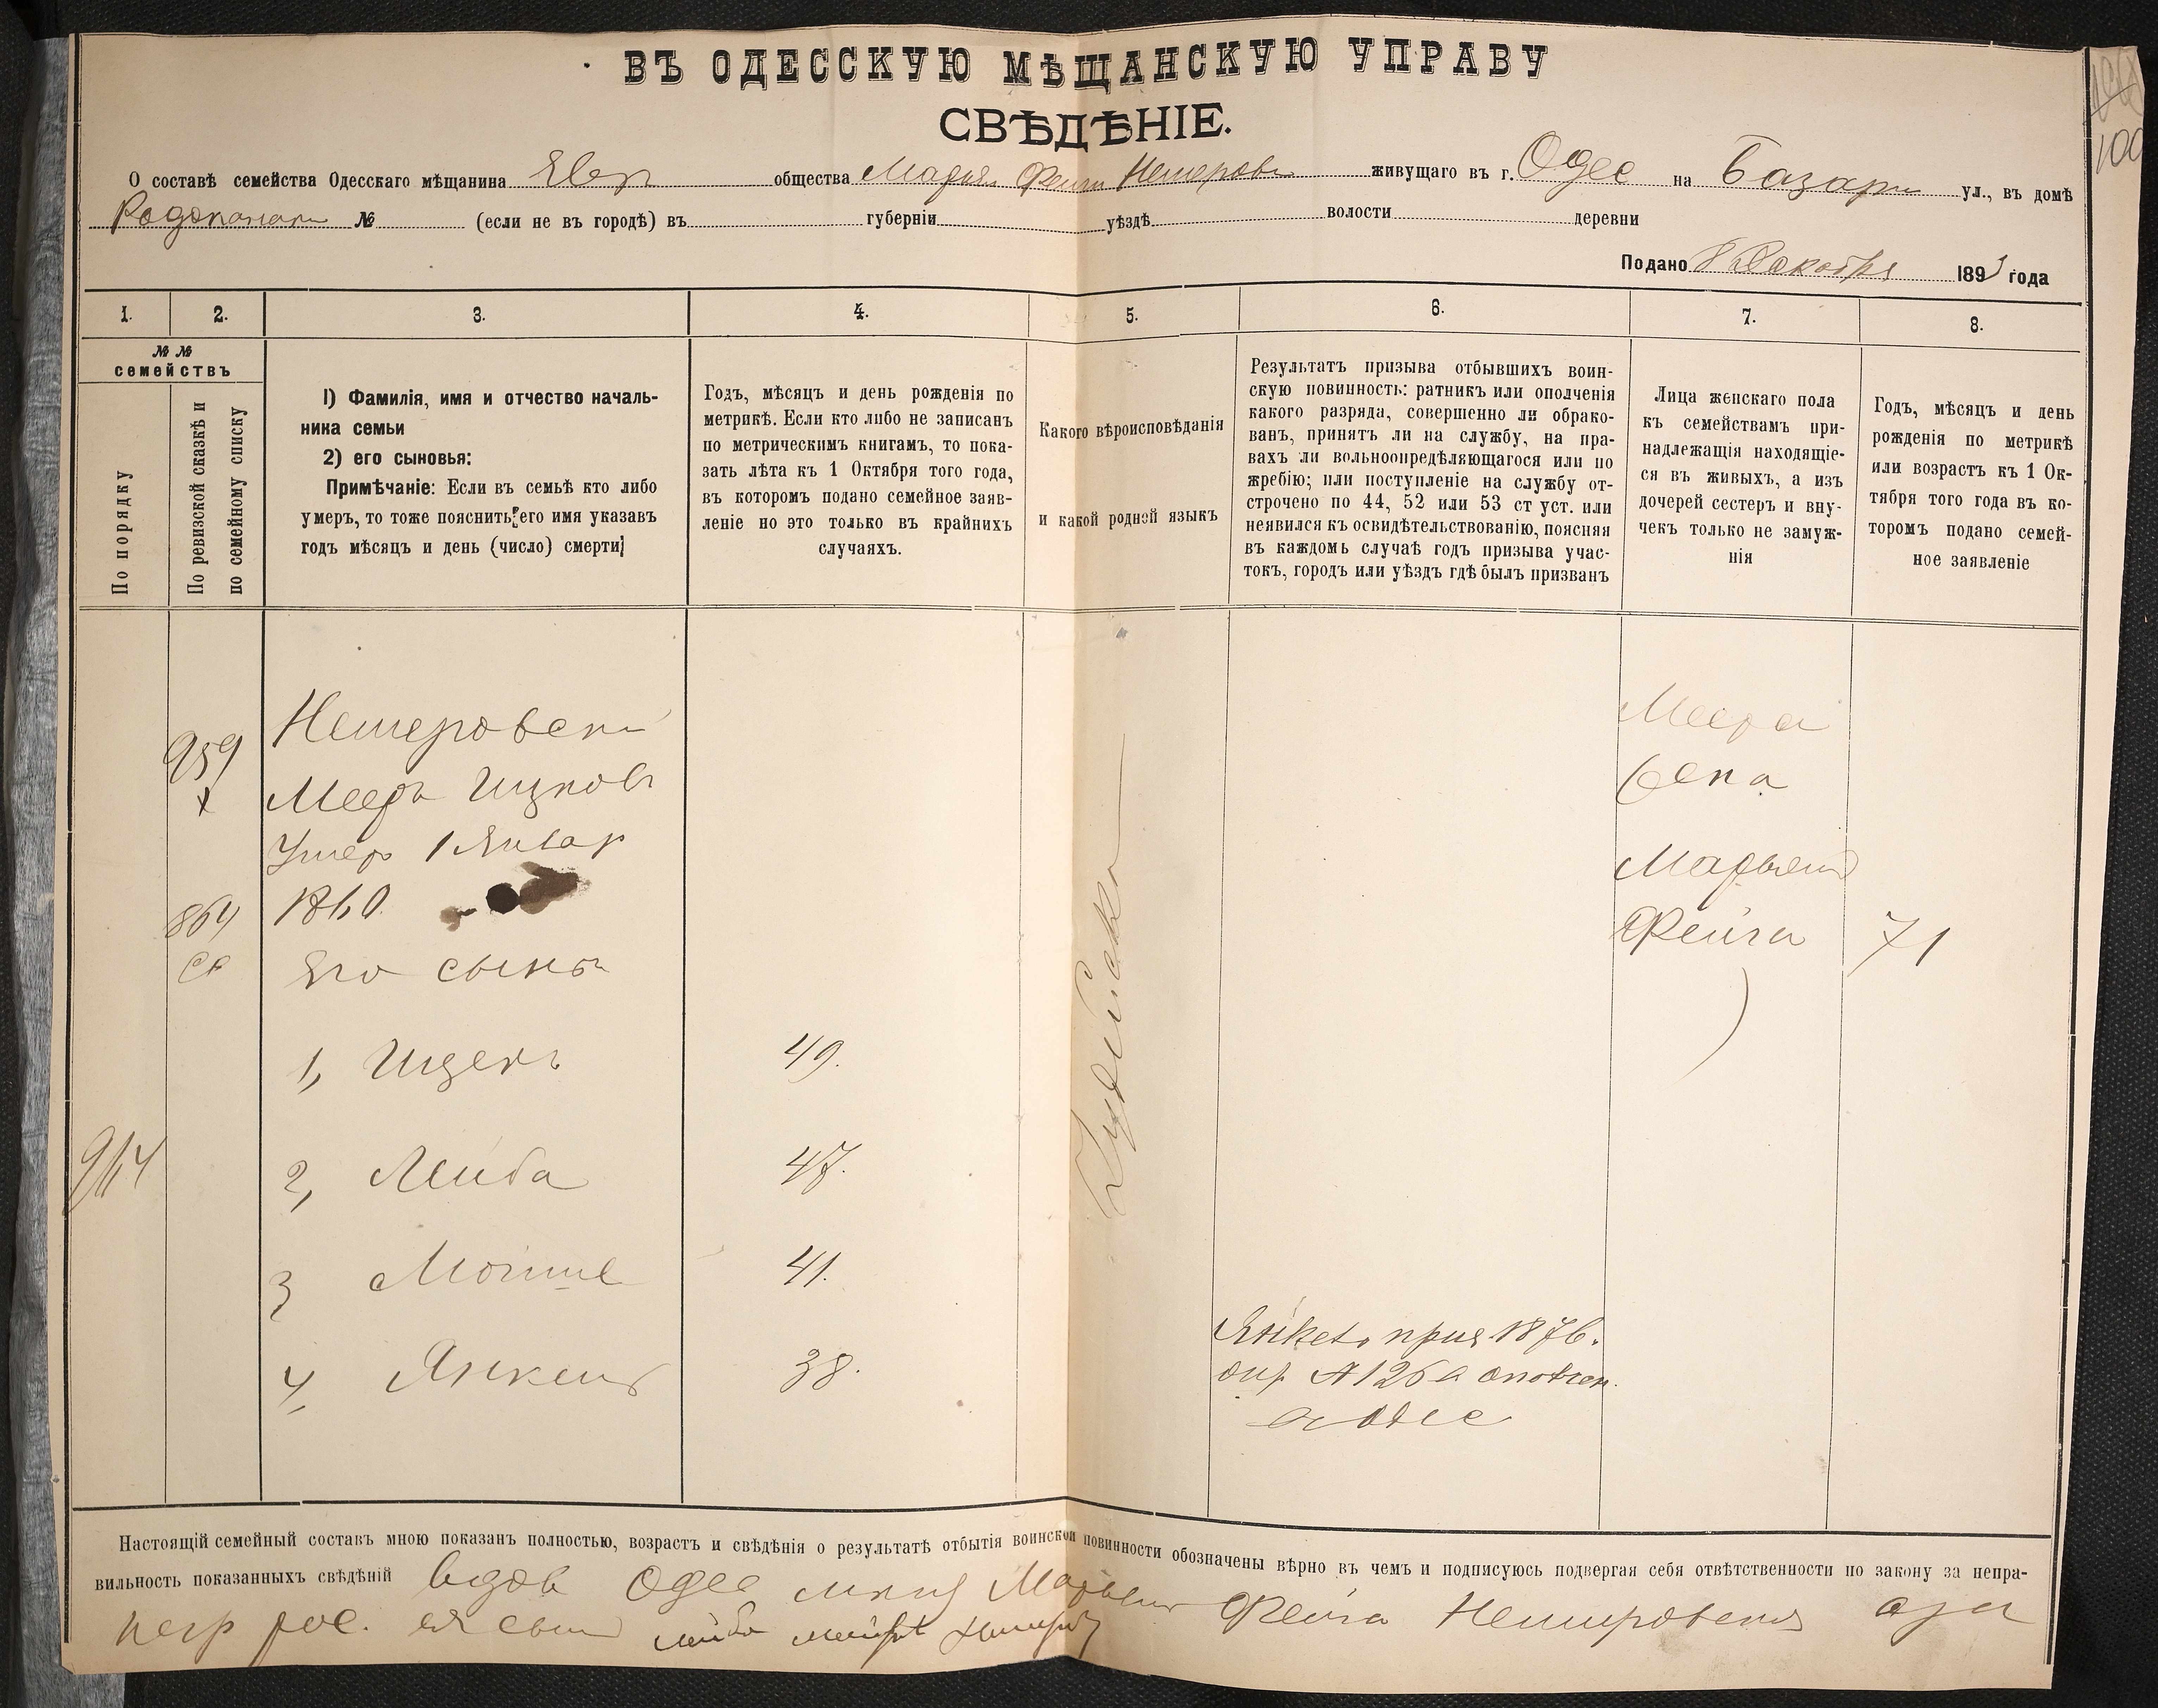 ВЪ ОДЕССКУЮ МѢЩАНСКУЮ УПРАВУ
СВѢДѢНІЕ.
О составѣ семейства Одесскаго мѣщанина Евр общества Марьям Фейги Немеровск живущаго въ г. Одес на Базарн ул., въ домѣ
Родоканаки № (если не въ городѣ) въ губерніи уѣздѣ волости деревни
Подано 8 Декабря 1893 года
1. 2. 3. 4. 5. 6. 7. 8.
№ № семействъ
По порядку
По ревизской сказкѣ и по семейному списку
1) Фамилія, имя и отчество началь-
ника семьи
2) его сыновья:
Примѣчаніе: Если въ семьѣ кто либо
умеръ, то тоже пояснить его имя указавъ
годъ мѣсяцъ и день (число) смерти
Годъ, мѣсяцъ и день рожденія по
метрикѣ. Если кто либо не записанъ
по метрическимъ книгамъ, то пока-
зать лѣта къ 1 Октября того года,
въ которомъ подано семейное заяв-
леніе но это только въ крайнихъ
случаяхъ.
Какого вѣроисповѣданія
и какой родной языкъ
Результатъ призыва отбывшихъ воин-
скую повинность: ратникъ или ополченія
какого разряда, совершенно ли обрако-
ванъ, принятъ ли на службу, на пра-
вахъ ли вольноопредѣляющагося или по
жребію; или поступленіе на службу от-
строчено по 44, 52 или 53 ст уст. или
неявился къ освидѣтельствованію, поясняя
въ каждомъ случаѣ годъ призыва учас-
токъ, городъ или уѣздъ гдѣ былъ призванъ
Лица женскаго пола
къ семействамъ при-
надлежащія находящіе-
ся въ живыхъ, а изъ
дочерей сестеръ и вну-
чекъ только не замуж-
нія
Годъ, мѣсяцъ и день
рожденія по метрикѣ
или возрастъ къ 1 Ок-
тября того года въ ко-
торомъ подано семей-
ное заявленіе
Немеровски
959 Мееръ Ицковъ
Умеръ 1 Январ
1860.
864 Его сыновья
Меера
жена
Марьям
Фейга 71
Иудейско
1, Ицекъ 49.
964
2, Лейба 47.
3 Мойше 41.
4, Янкель 38.
Янкель приз 1876.
Одес
Настоящій семейный составъ мною показанъ полностью, возрастъ и свѣдѣнія о результатѣ отбытія воинской повинности обозначены вѣрно въ чемъ и подписуюсь подвергая себя отвѣтственности по закону за непра-
вильность показанныхъ свѣдѣній вдов Одес Марьям Фейга Немировская а за
негр рос. ея сын Лейба
100